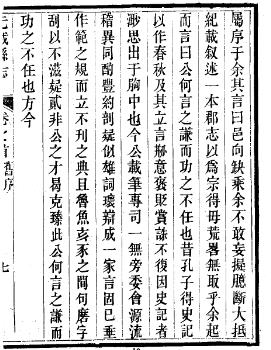 屬序于余其言曰邑向缺乘余不敢妄揣臆斷大抵
紀載叙述一本郡志以爲宗得毋荒畧無取乎余起
而言曰公何言之謙而功之不任也昔孔子得史記
以作春秋及其立言辭意褒貶賞諱不復因史記者
渺思出于胸中也今公載筆專司一無旁委會源流
稽異同酌豐約剖疑似雄詞瓌辯成一家言固已垂
作範之規而立不刋之典且魯魚亥豕之間句磨字
刮以不滋疑貳非公之才曷克臻此公何言之謙而
功之不任也方今
元城縣志
卷之首舊序
七